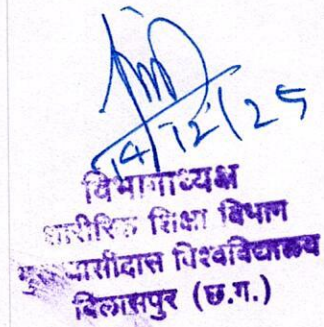 14/12/25
विभागाध्यक्ष
शारीरिक शिक्षा विभाग
गुरु घासीदास विश्वविद्यालय
बिलासपुर (छ.ग.)